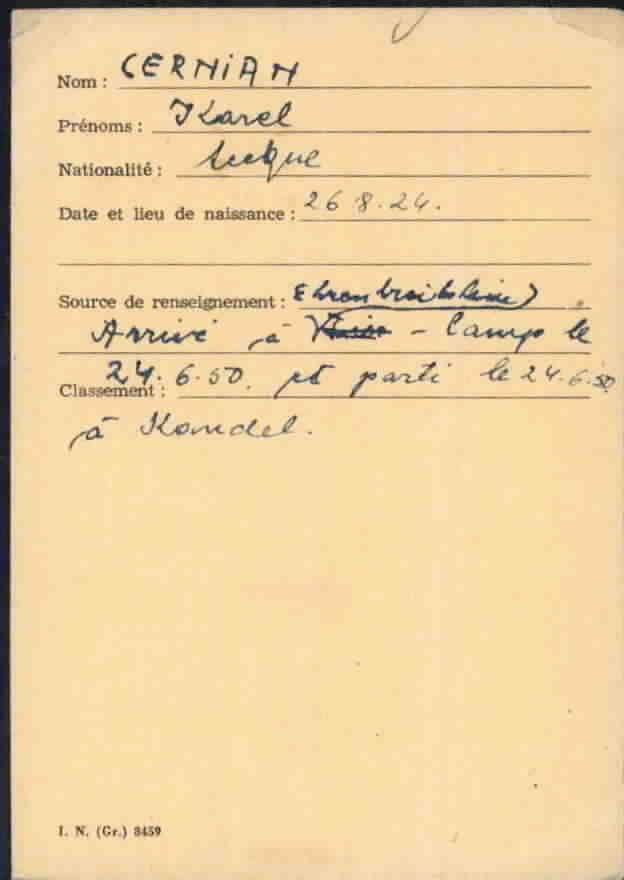 Nom : CERNIAN
Prénoms : Karel
Nationalité : tcèque
Date et lieu de naissance : 26 8. 24.
Source de renseignement : Ehrenbreitstein)
Arrivé à - Camp le
Classement : 24. 6. 50. et parti le 24. 6. 50
à Kandel.
I. N. (Gr.) 8459